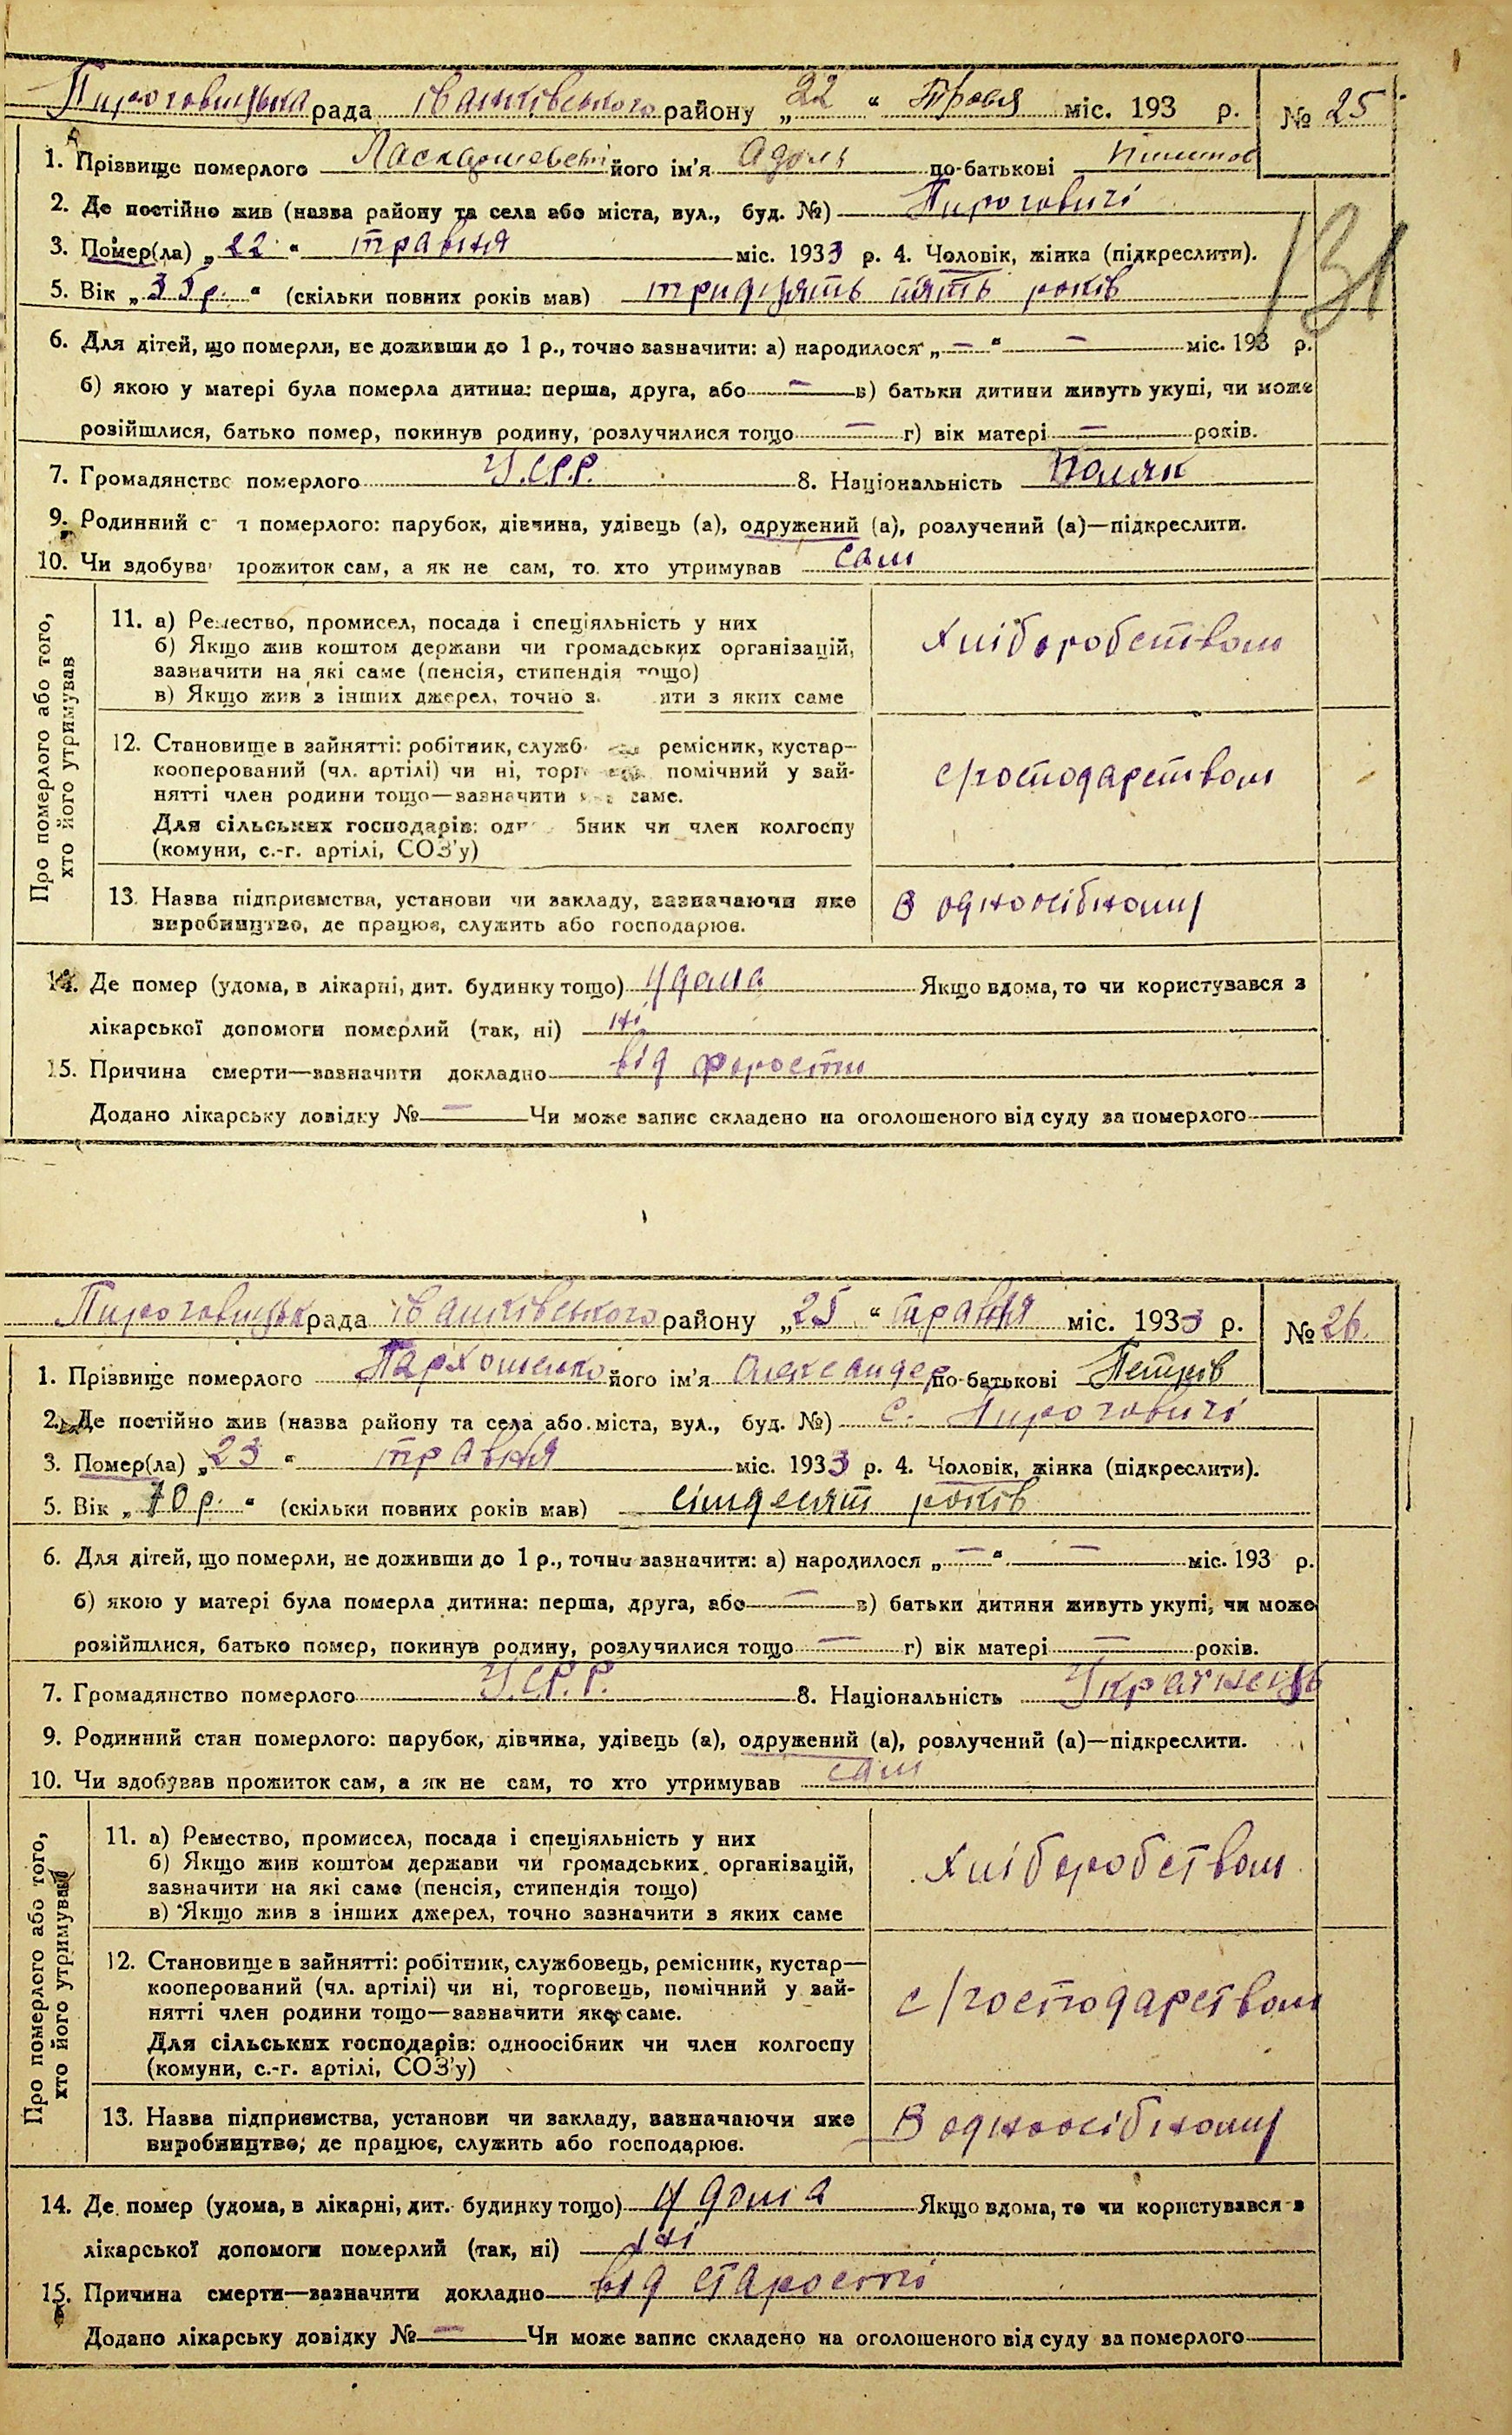 Пироговицька рада Іванківського району „22“ Травня міс. 193 р. № 25
1. Прізвище померлого його ім'я Адоль по-батькові
2. Де постійно жив (назва району та села або міста, вул., буд. №) Пироговичі
3. Помер(ла) „22“ травня міс. 1933 р. 4. Чоловік, жінка (підкреслити).
131
5. Вік „35 р.“ (скільки повних років мав) тридцять пять років
6. Для дітей, що померли, не доживши до 1 р., точно зазначити: а) народилося „—“ — міс. 193 р.
б) якою у матері була померла дитина: перша, друга, або — в) батьки дитини живуть укупі, чи може
розійшлися, батько помер, покинув родину, розлучилися тощо — г) вік матері — років.
7. Громадянство померлого У.С.Р.Р. 8. Національність Поляк
9. Родинний с н померлого: парубок, дівчина, удівець (а), одружений (а), розлучений (а)—підкреслити.
10. Чи здобува прожиток сам, а як не сам, то хто утримував сам
Про померлого або того,
хто його утримував
11. а) Ремество, промисел, посада і спеціяльність у них
б) Якщо жив коштом держави чи громадських організацій,
зазначити на які саме (пенсія, стипендія тощо)
в) Якщо жив з інших джерел, точно за ити з яких саме
хліборобством
12. Становище в зайнятті: робітник, служб ремісник, кустар—
кооперований (чл. артілі) чи ні, торг помічний у зай-
нятті член родини тощо—зазначити яке саме.
Для сільських господарів: одн бник чи член колгоспу
(комуни, с.-г. артілі, СОЗ'у)
с/господарством
13. Назва підприємства, установи чи закладу, зазначаючи яке
виробництво, де працює, служить або господарює.
В одноосібному
14. Де помер (удома, в лікарні, дит. будинку тощо) у дома Якщо вдома, то чи користувався з
лікарської допомоги померлий (так, ні) ні
15. Причина смерти—зазначити докладно від
Додано лікарську довідку № — Чи може запис складено на оголошеного від суду за померлого
Пироговицьк рада Іванківського району „25“ травня міс. 1933 р. № 26.
1. Прізвище померлого Пархоменко його ім'я Олександер по-батькові Петров
2. Де постійно жив (назва району та села або міста, вул., буд. №) с. Пироговичі
3. Помер(ла) „23“ травня міс. 1933 р. 4. Чоловік, жінка (підкреслити).
5. Вік „70 р.“ (скільки повних років мав) сімдесят років
6. Для дітей, що померли, не доживши до 1 р., точно зазначити: а) народилося „—“ — міс. 193 р.
б) якою у матері була померла дитина: перша, друга, або — в) батьки дитини живуть укупі, чи може
розійшлися, батько помер, покинув родину, розлучилися тощо — г) вік матері — років.
7. Громадянство померлого У.С.Р.Р. 8. Національність Українець
9. Родинний стан померлого: парубок, дівчина, удівець (а), одружений (а), розлучений (а)—підкреслити.
10. Чи здобував прожиток сам, а як не сам, то хто утримував сам
Про померлого або того,
хто його утримував
11. а) Ремество, промисел, посада і спеціяльність у них
б) Якщо жив коштом держави чи громадських організацій,
зазначити на які саме (пенсія, стипендія тощо)
в) Якщо жив з інших джерел, точно зазначити з яких саме
хліборобством
12. Становище в зайнятті: робітник, службовець, ремісник, кустар—
кооперований (чл. артілі) чи ні, торговець, помічний у зай-
нятті член родини тощо—зазначити яке саме.
Для сільських господарів: одноосібник чи член колгоспу
(комуни, с.-г. артілі, СОЗ'у)
с/господарством
13. Назва підприємства, установи чи закладу, зазначаючи яке
виробництво, де працює, служить або господарює.
В одноосібному
14. Де помер (удома, в лікарні, дит. будинку тощо) у дома Якщо вдома, то чи користувався з
лікарської допомоги померлий (так, ні) ні
15. Причина смерти—зазначити докладно від старости
Додано лікарську довідку № — Чи може запис складено на оголошеного від суду за померлого